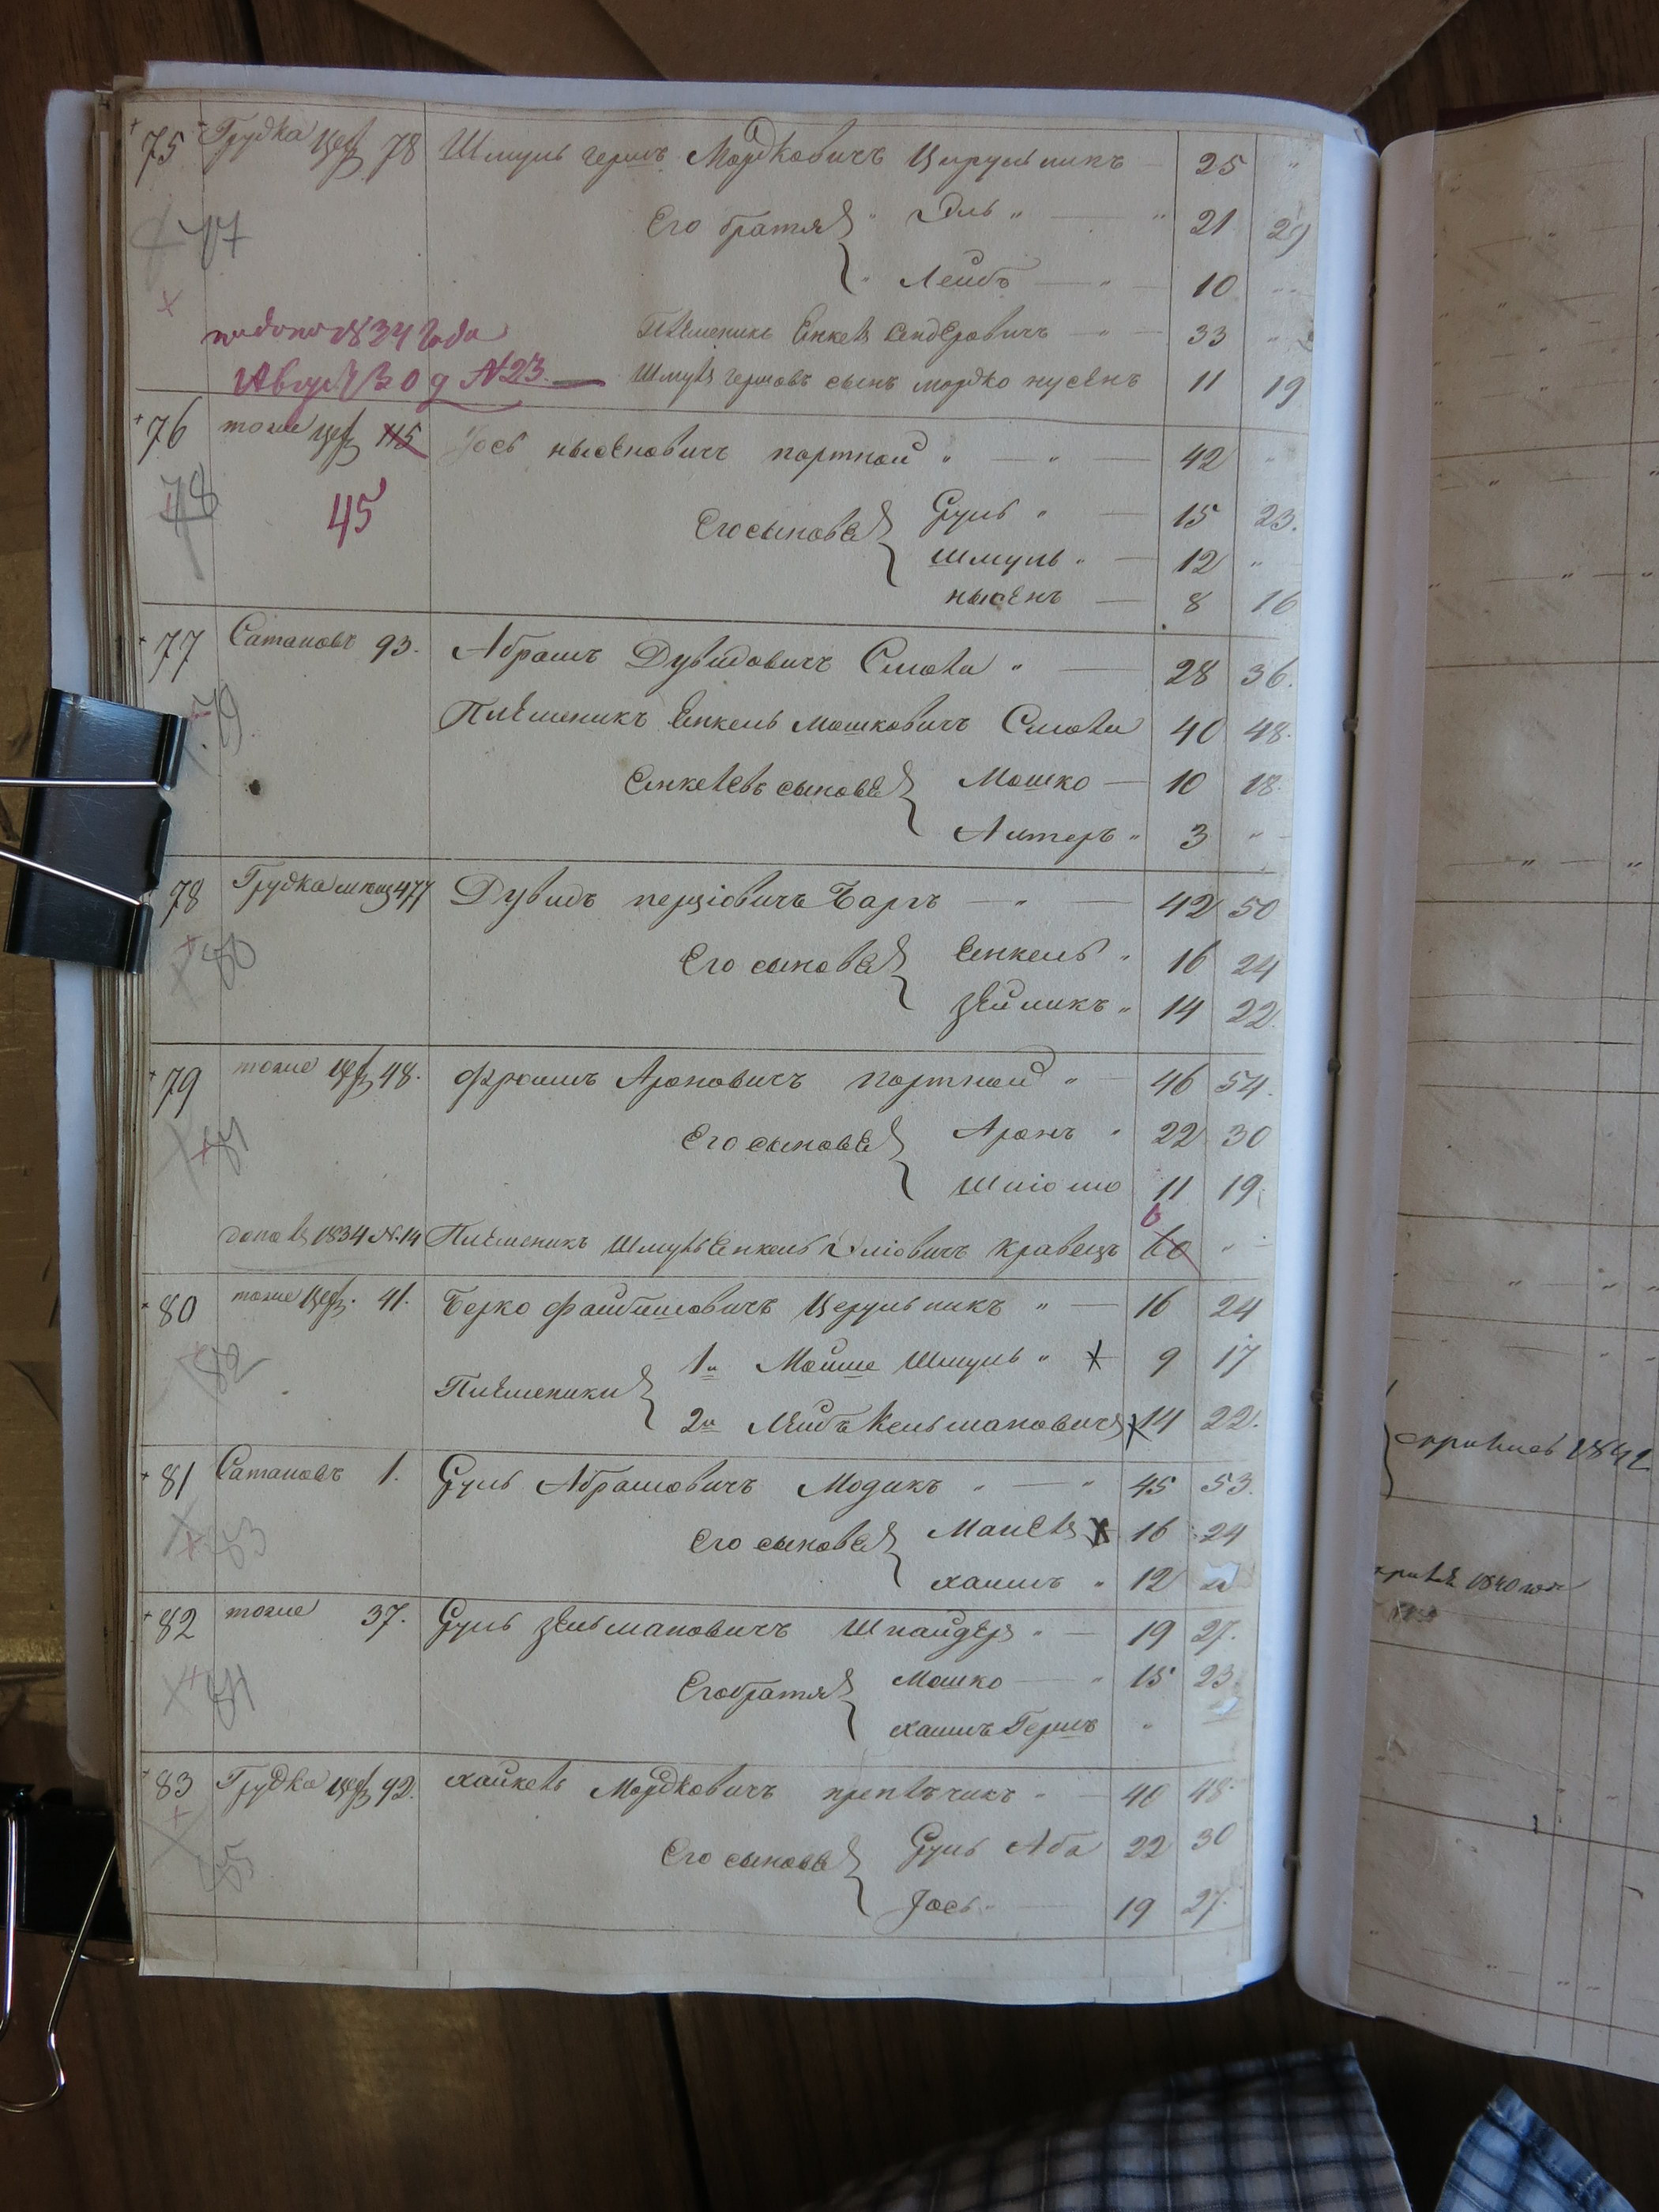 75 Грудка цех 78 Шмуль герш Мордковичъ Цирульникъ — 25 "
77 Его братья " Эль " — " 21 29
" Лейбъ — " — 10
1834 года Племеникъ Енкель Сендеровичъ — " — 33 "
N 23. — Шмуля гершовъ сынъ мордко нусенъ 11 19
76 тоже цех 115 Іось нысеновичъ портной " — " — 42 "
78 45 Его сыновья Сруль " — 15 23.
Шмуль " — 12 "
нысенъ — 8 16
77 Сатановъ 93. Абрамъ Дувидовичъ " — 28 36.
79. Племеникъ Енкель Мошковичъ 40 48.
Енкелевъ сыновья Мошко — 10 18
Алтеръ " 3 "
78 Грудка 477 Дувидъ перціовичъ Баръ — " — 42 50
80 Его сыновья Енкель " 16 24
зейликъ " 14 22.
79 тоже цех 48. Фроимъ Ароновичъ портной " — 46 54.
81 Его сыновья Аронъ " 22 30
Шліомо 11 19.
6
1834 N. 14 Племеникъ Шмуль Енкель Эліовичъ Кравецъ 10 "
80 тоже цех. 41. Берко Файбишовичъ Церульникъ " — 16 24
82 Племеники 1й Мойше Шмуль " 9 17
2й Лейбъ Кельмановичъ 14 22.
81 Сатановъ 1. Сруль Абрамовичъ Модикъ " — " 45 53.
83 Его сыновья Манель 16 24
хаимъ " 12
82 тоже 37. Сруль зельмановичъ Шнайдеръ " — 19 27.
84 Его братья Мошко — " 15 23.
хаимъ Гершъ "
83 Грудка цех 92. хайкель Мордковичъ " — 40 48.
85 Его сыновья Сруль Аба 22 30
Іось " — 19 27.
1842
1840